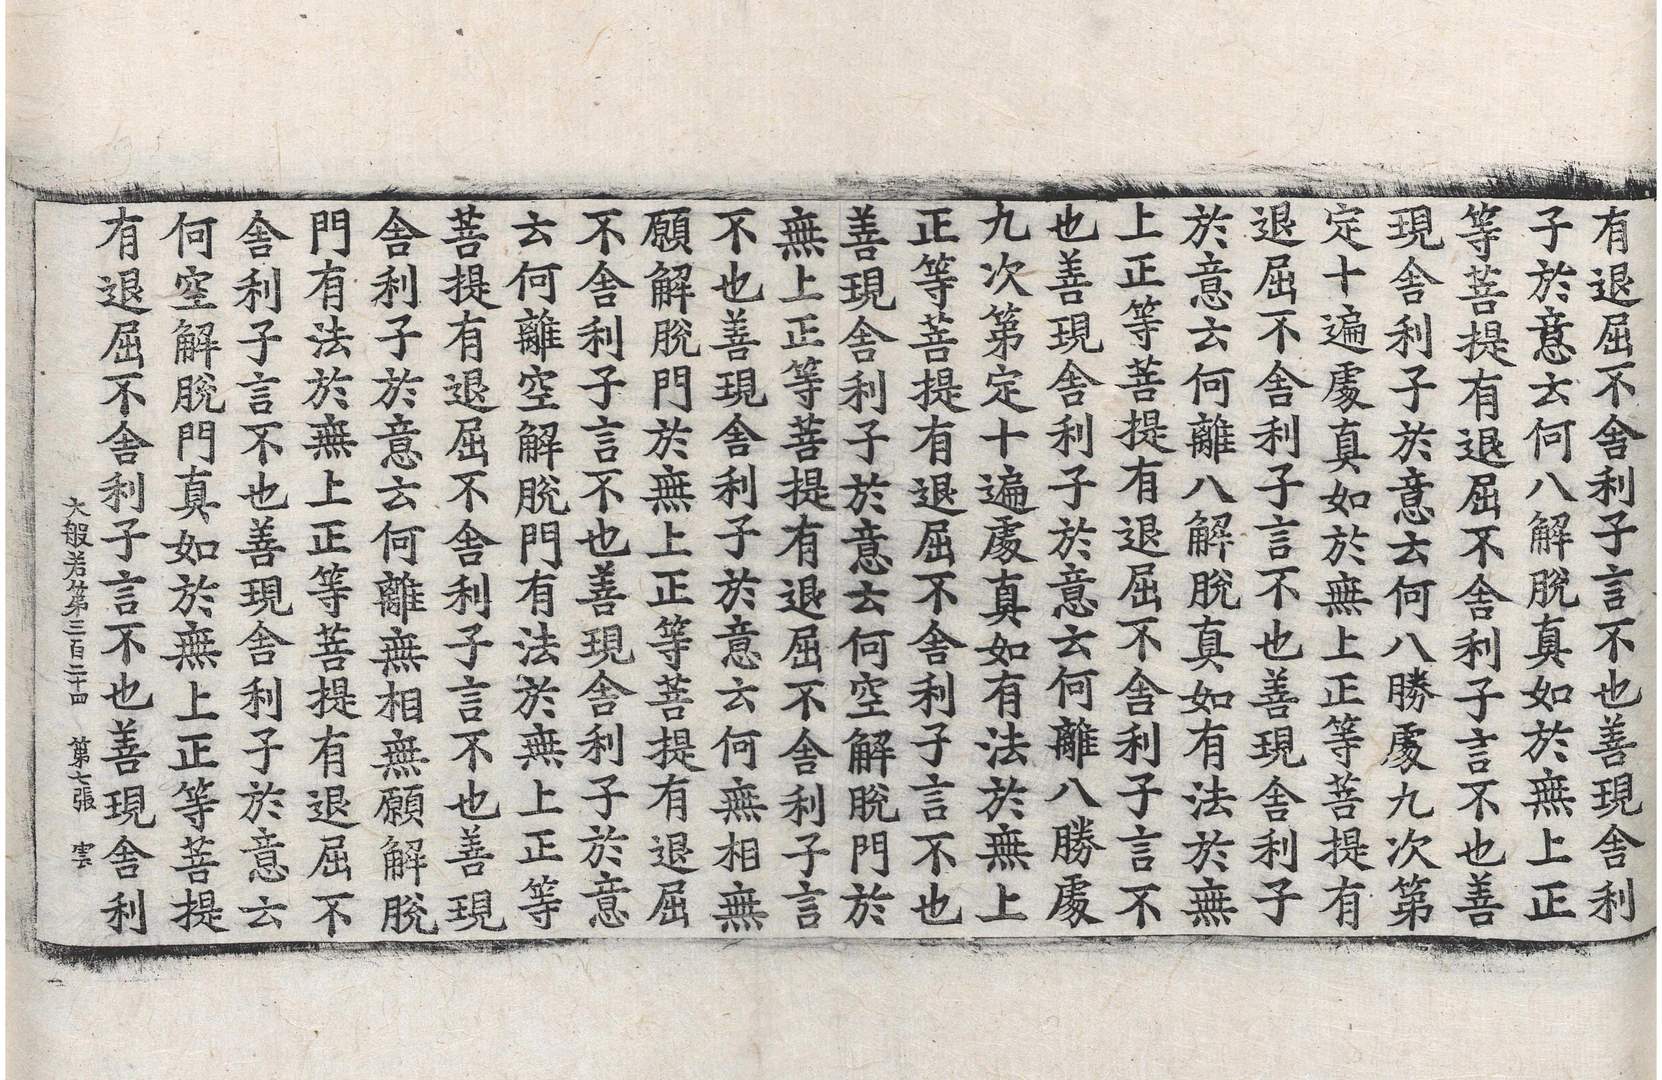 有退屈不舍利子言不也善現舍利
子於意云何八解脫真如於無上正
等菩提有退屈不舍利子言不也善
現舍利子於意云何八勝處九次第
定十遍處真如於無上正等菩提有
退屈不舍利子言不也善現舍利子
於意云何離八解脫真如有法於無
上正等菩提有退屈不舍利子言不
也善現舍利子於意云何離八勝處
九次第定十遍處真如有法於無上
正等菩提有退屈不舍利子言不也
善現舍利子於意云何空解脫門於
無上正等菩提有退屈不舍利子言
不也善現舍利子於意云何無相無
願解脫門於無上正等菩提有退屈
不舍利子言不也善現舍利子於意
云何離空解脫門有法於無上正等
菩提有退屈不舍利子言不也善現
舍利子於意云何離無相無願解脫
門有法於無上正等菩提有退屈不
舍利子言不也善現舍利子於意云
何空解脫門真如於無上正等菩提
有退屈不舍利子言不也善現舍利
大般若第三百二十四 第七張 雲